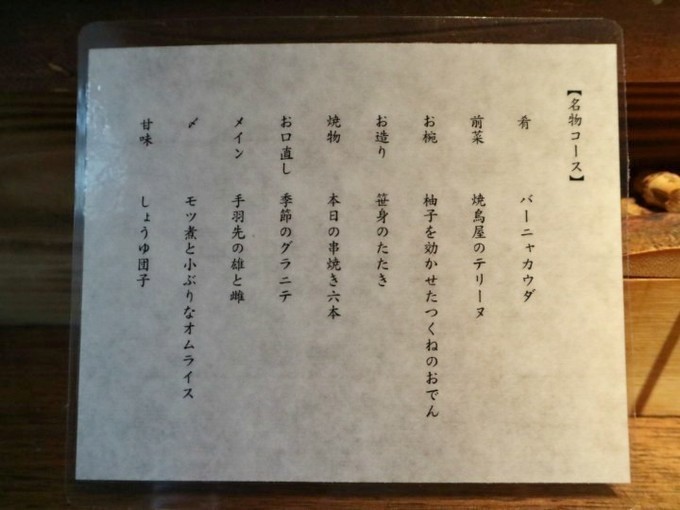 【名物コース】
肴 バーニャカウダ
前菜 焼鳥屋のテリーヌ
お椀 柚子を効かせたつくねのおでん
お造り 笹身のたたき
焼物 本日の串焼き六本
お口直し 季節のグラニテ
メイン 手羽先の雄と雌
〆 モツ煮と小ぶりなオムライス
甘味 しょうゆ団子